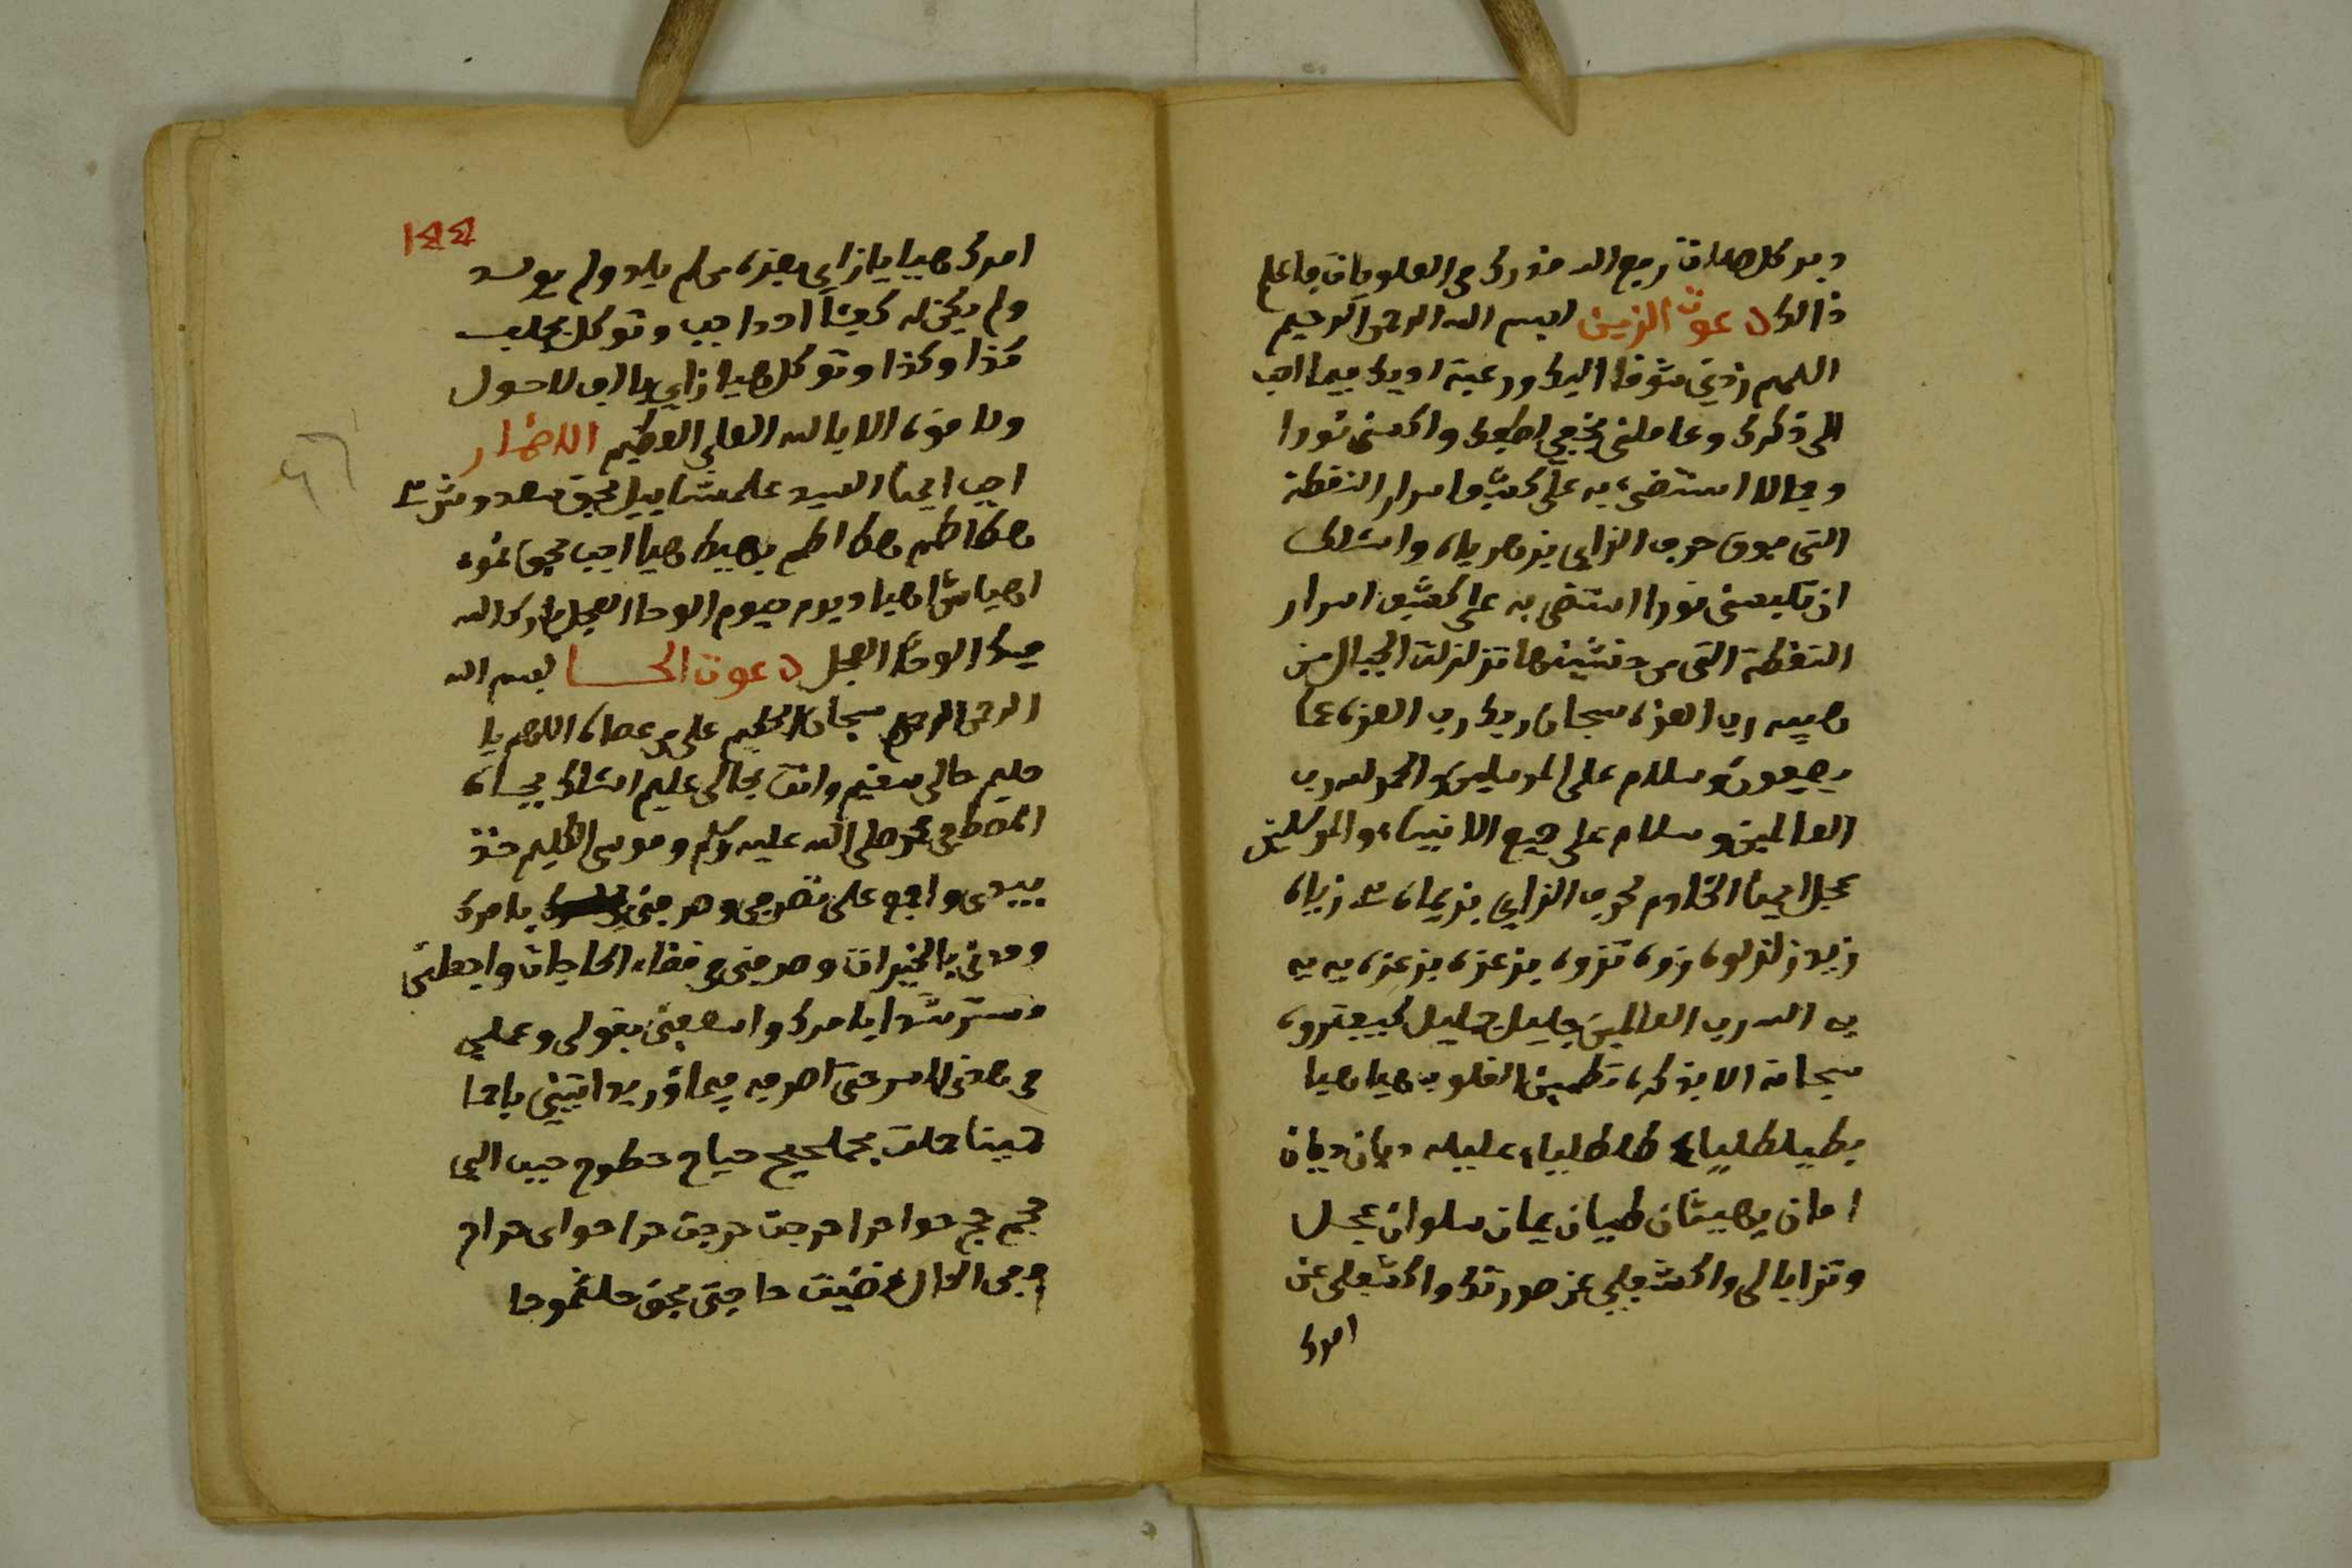 دبر كل صلات رفع الله قدرك في العلويات فاعلم
ذالك دعوت الزين بسم الله الرحمن الرحيم
اللهم زدني شوقا اليك ورغبة لديك فيما احب
الى ذكرك وعاملني بخفي لطفك واكسني نورا
وجمالا استضيء به على كشف اسرار النقطة
التي فوق حرف الزاي يزهرياه واسئلك
ان تكسني نورا استضي به على كشف اسرار
النقطة التي من خشيتها تزلزلت الجبال من
هيبه رب العزه سبحان ربك رب العزه عما
يصفون وسلام على المرسلين والحمد لله رب
العالمين وسلام على جميع الانبياء والمرسلين
عجل ايها الخادم لحرف الزاي بزيماه زياه
زيد زلزلوه زوه تزوه بزعزه بزعزه يه يه
يه الله رب العالمين جليل جليل
سبحانه الا بذكره تطمين القلوب هيا هيا
بطيطلطلياء طلطلياء عليله ديان ديان
امان يهيثان طيان يمان سلوان عجل
وتزايا لي واكشف لي عن صورتك واكشف لي عن
امرك
١٤٤
امرك هيا يا زاي بعزه من لم يلد ولم يولد
ولم يكن له كفئا احد اجب وتوكل بجلب
كذا وكذا وتوكل هيا زاي لاحول
ولا قوه الا بالله العلي العظيم الاضمار
اجب ايها السيد علمشاييل بحق سعدوش
هكا هكا بهيك هيا اجب بحق
اهيا شراهيا ديوم الوحا العجل بارك الله
فيك الوحا العجل دعوت الحا بسم الله
الرحمن الرحيم سبحان الحليم على من عصاه اللهم يا
حليم حالي سقيم وانت بحالي عليم اسئلك بجاه
المصطفى محمد صلى الله عليه وسلم وموسى الكليم خذ
بيدي واجمع على تصرفي وصرفني يا مرك
ومدني بالخيرات وصرفني في قضاء الحاجات واجعلني
مسترشدا بامرك واسعفني بقولي وعملي
في هذي الامر حتى اصرفه فيما اوريد اتيني ياحا
حجم حج حوا حرا حرجت حرجت حرا حواى حراح
في الحال قضيت حاجتي بحق